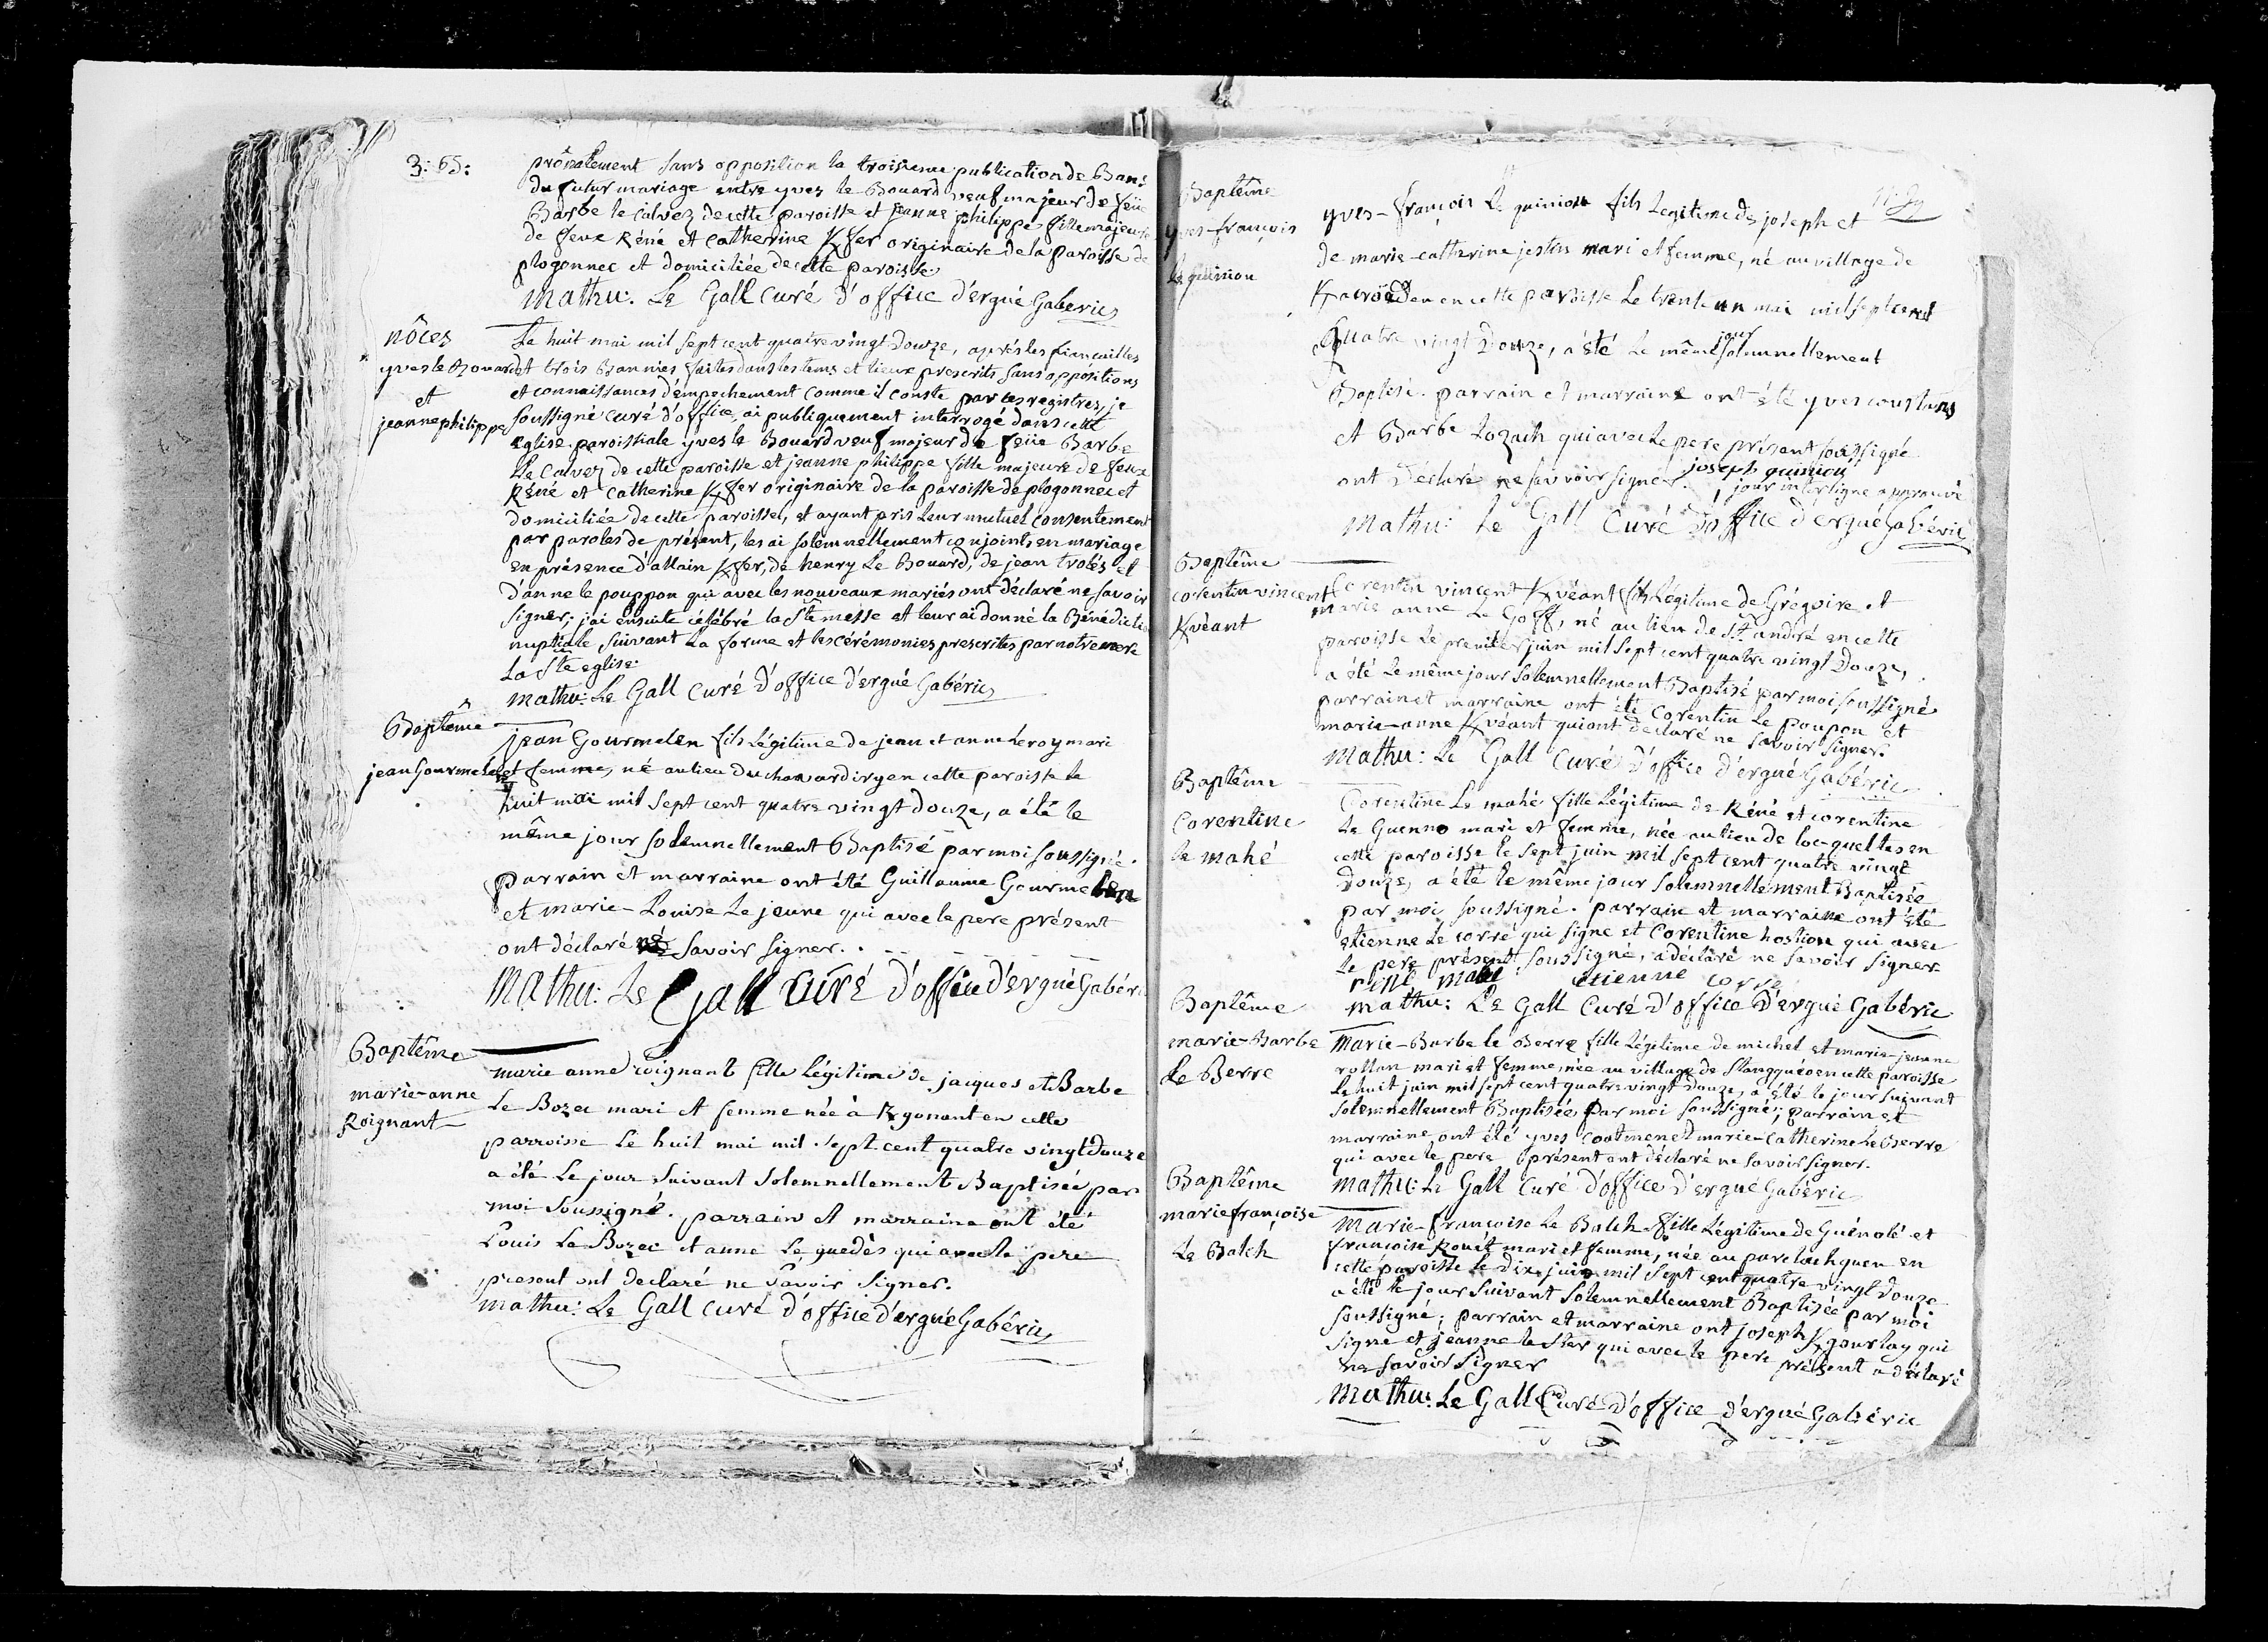 3: 65:
prônalement sans opposition la troisieme publication de Bans
du futur mariage entre yves le Bouard veuf majeur de feüe
Barbe le calvez de cette paroisse et jeanne philippe fille majeure
de feux Réné et Catherine Kfer originaire de la paroisse de
plogonnec et domiciliée de cette paroisse.
Mathu: Le Gall Curé d'office d'ergué Gaberic
nôces
yves le Bouard
et
jeanne philippe
Le huit mai mil sept cent quatre vingt Douze, aprés les fiancailles
et trois Bannies faites dans les tems et lieux prescrits sans oppositions
et connaissances d'empechement comme il conste par les registres, je
soussigné curé d'office, ai publiquement interrogé dans cette
eglise paroissiale yves le Bouard veuf majeur de feüe Barbe
Le Calvez de cette paroisse et jeanne philippe fille majeure de feux
Réné et Catherine Kfer originaire de la paroisse de plogonnec et
domiciliée de cette paroisse, et ayant pris leur mutuel consentement
par paroles de présent, les ai solemnellement conjoints en mariage
en présence d'allain Kfer, de henry Le Bouard, de jean trolés et
d'anne le pouppon qui avec les nouveaux mariés ont déclaré ne savoir
signer; j'ai ensuite célébré la Ste messe et leur ai donné la Bénédictio
nuptiale suivant la forme et les cérémonies prescrites par notre mere
La Ste eglise.
Mathu: Le Gall Curé d'office d'ergué Gabéric
Baptême
jean Gourmelen
jean Gourmelen fils légitime de jean et anne Le roy mari
et femme, né au lieu du en cette paroisse le
huit mai mil sept cent quatre vingt douze, a été le
même jour solemnellement Baptisé par moi soussigné.
parrain et marraine ont été Guillaume Gourmelen
et marie-Louise Le jeune qui avec le pere présent
ont déclaré ne savoir signer.
Mathu: Le Gall Curé d'office d'ergué Gabéri
Baptême
marie-anne
Roignant
marie anne roignant fille légitime de jacques et Barbe
Le Bozec mari et femme née à Kgonant en cette
parroisse le huit mai mil sept cent quatre vingt Douze
a été Le jour suivant solemnellement Baptisée par
moi soussigné. parrain et marraine ont été
Louis Le Bozec et anne Le guedès qui avec le pere
present ont declaré ne savoir signer.
Mathu: Le Gall Curé d'office d'ergué Gabéric
Baptême
yves-françois
Le quiniou
yves-françois Le quiniou fils legitime de joseph et
de marie-catherine jestin mari et femme, né au village de
en cette paroisse Le trente un mai mil sept cent
Quatre vingt Douze, a été Le même jour solemnellement
Baptisé. parrain et marraine ont été yves coustans
et Barbe Lozach qui avec Le pere présent soussigné
ont Déclaré ne savoir signer. joseph quiniou
jour interligne approuvé
Mathu: Le Gall Curé d'office d'ergué Gabéric
Baptême
corentin vincent
Kvéant
Corentin vincent Kvéant fils Légitime de Grégoire et
marie anne Le Goff, né au lieu de St andré en cette
paroisse Le premier juin mil sept cent quatre vingt Douze,
a été Le même jour solemnellement Baptisé par moi soussigné
parrain et marraine ont été Corentin Le poupon et
marie-anne Kvéant qui ont déclaré ne savoir signer.
Mathu: Le Gall Curé d'office d'ergué Gabéric
Baptême
Corentine
le mahé
Corentine Le mahé fille Légitime de Réné et corentine
Le Guenno mari et femme, née au lieu de loc-queltas en
cette paroisse le sept juin mil sept cent quatre vingt
Douze, a été le même jour solemnellement Baptisée
par moi soussigné. parrain et marraine ont été
etienne Le corre qui signe et Corentine hostiou qui avec
le pere présent soussigné, a déclaré ne savoir signer
etienne corre
Mathu: Le Gall Curé d'office d'ergué Gabéric
Baptême
marie-Barbe
Le Berre
Marie-Barbe le Berre fille Légitime de michel et marie-jeanne
rolland mari et femme, née au village de Stangquéo en cette paroisse
Le huit juin mil sept cent quatre vingt Douze, a été le jour suivant
solemnellement Baptisée par moi soussigné; parrain et
marraine ont été yves coatmen et marie-Catherine Le Berre
qui avec le pere présent ont déclaré ne savoir signer.
Mathu: Le Gall Curé d'office d'ergué Gabéric
Baptême
marie françoise
Le Balch
Marie-françoise Le Balch fille Légitime de Guénolé et
françoise Rouét mari et femme, née au en
cette paroisse le dix juin mil sept cent quatre vingt Douze
a été le jour suivant solemnellement Baptisée par moi
soussigné; parrain et marraine ont joseph Kgourlay qui
signe et jeanne le ster qui avec le pere présent a déclaré
ne savoir signer
Mathu: Le Gall Curé d'office d'ergué Gabéric